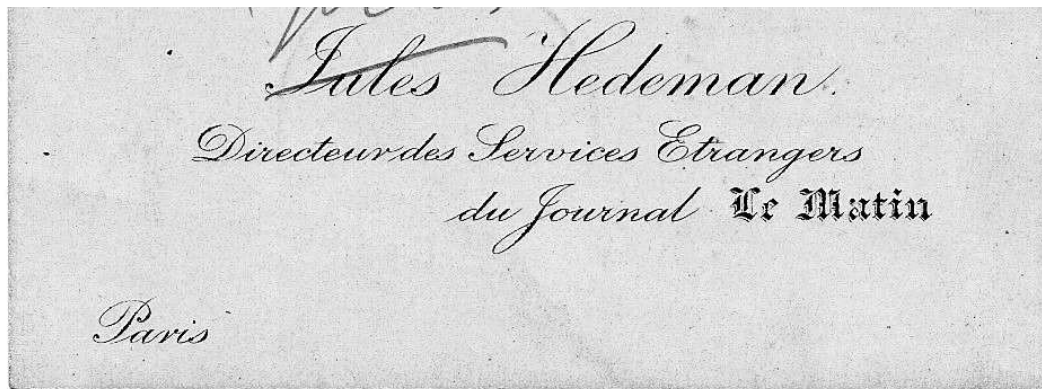 Jules Hedeman.
Directeur des Services Etrangers
du Journal Le Matin
Paris